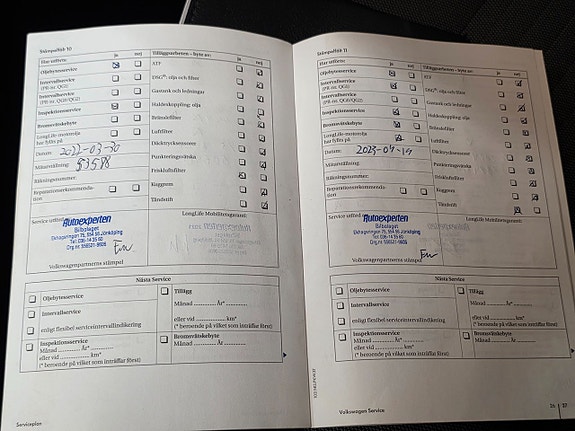 Stämpelfält 10
Har utförts: ja nej
Oljebytesservice
Intervallservice
(PR-nr. QG1)
Intervallservice
(PR-nr. QG0/QG2)
Inspektionsservice
Bromsvätskebyte
LongLife-motorolja
har fyllts på
Datum: 2022-03-30
Mätarställning:
Räkningsnummer:
Reparationsrekommenda-
tion
Tilläggsarbeten – byte av: ja nej
ATF
DSG®: olja och filter
Gastank och ledningar
Haldexkoppling: olja
Bränslefilter
Luftfilter
Däcktryckssensorer
Punkteringsvätska
Friskluftsfilter
Kuggrem
Tändstift
Service utförd
Autoexperten
Bilbolaget
Ekhagsringen 75, 554 56 Jönköping
Tel: 036-14 35 60
Volkswagenpartnerns stämpel
LongLife Mobilitetsgaranti:
Nästa Service
Oljebytesservice
Intervallservice
enligt flexibel serviceintervallindikering
Inspektionsservice
Månad ............ År* ............
eller vid .................. km*
(* beroende på vilket som inträffar först)
Tillägg
Månad ............ År ............
eller vid .................. km*
(* beroende på vilket som inträffar först)
Bromsvätskebyte
Månad ............ År ............
Serviceplan
Stämpelfält 11
Har utförts: ja nej
Oljebytesservice
Intervallservice
(PR-nr. QG1)
Intervallservice
(PR-nr. QG0/QG2)
Inspektionsservice
Bromsvätskebyte
LongLife-motorolja
har fyllts på
Datum: 2023-04-19
Mätarställning:
Räkningsnummer:
Reparationsrekommendation
Tilläggsarbeten – byte av: ja nej
ATF
DSG®: olja och filter
Gastank och ledningar
Haldexkoppling: olja
Bränslefilter
Luftfilter
Däcktryckssensorer
Punkteringsvätska
Friskluftsfilter
Kuggrem
Tändstift
Service utförd
Autoexperten
Bilbolaget
Ekhagsringen 75, 554 56 Jönköping
Tel: 036-14 35 60
Volkswagenpartnerns stämpel
LongLife Mobilitetsgaranti:
Nästa Service
Oljebytesservice
Intervallservice
enligt flexibel serviceintervallindikering
Inspektionsservice
Månad ............ År* ............
eller vid .................. km*
(* beroende på vilket som inträffar först)
Tillägg
Månad ............ År ............
eller vid .................. km*
(* beroende på vilket som inträffar först)
Bromsvätskebyte
Månad ............ År ............
Volkswagen Service
26 | 27